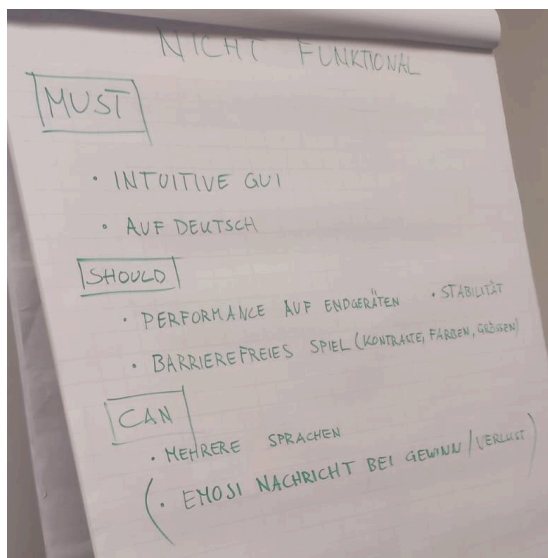 NICHT FUNKTIONAL
MUST
• INTUITIVE GUI
• AUF DEUTSCH
SHOULD
• PERFORMANCE AUF ENDGERÄTEN • STABILITÄT
• BARRIEREFREIES SPIEL (KONTRASTE, FARBEN, GRÖSSEN)
CAN
• MEHRERE SPRACHEN
(• EMOJI NACHRICHT BEI GEWINN/VERLUST)